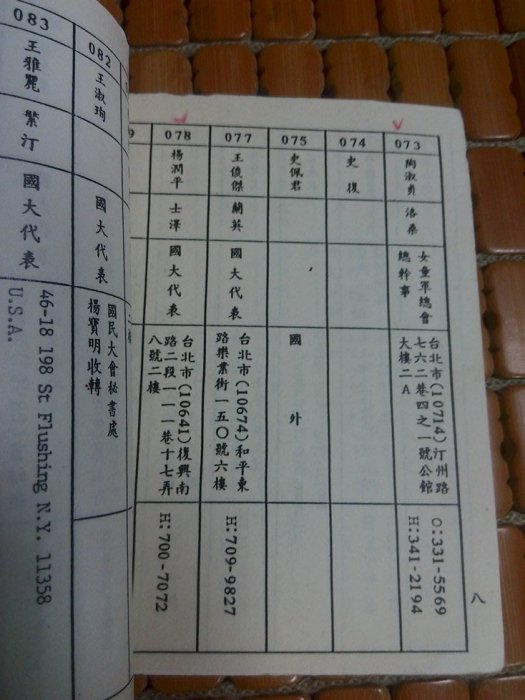 073
陶淑貞
洛桑
女童軍總會
總幹事
台北市(10714)汀州路
七六二巷四之一號公館
大樓二A
O:331-5569
H:341-2194
074
史復
075
史佩君
國外
077
王俊傑
蘭英
國大代表
台北市(10674)和平東
路樂業街一五〇號六樓
H:709-9827
078
楊潤平
士澤
國大代表
台北市(10641)復興南
路二段一一一巷十七弄
八號二樓
H:700-7072
八
082
王淑珣
國大代表
國民大會秘書處
楊寶明收轉
083
王雅麗
繁汀
國大代表
46-18 198 St Flushing N.Y. 11358
U.S.A.